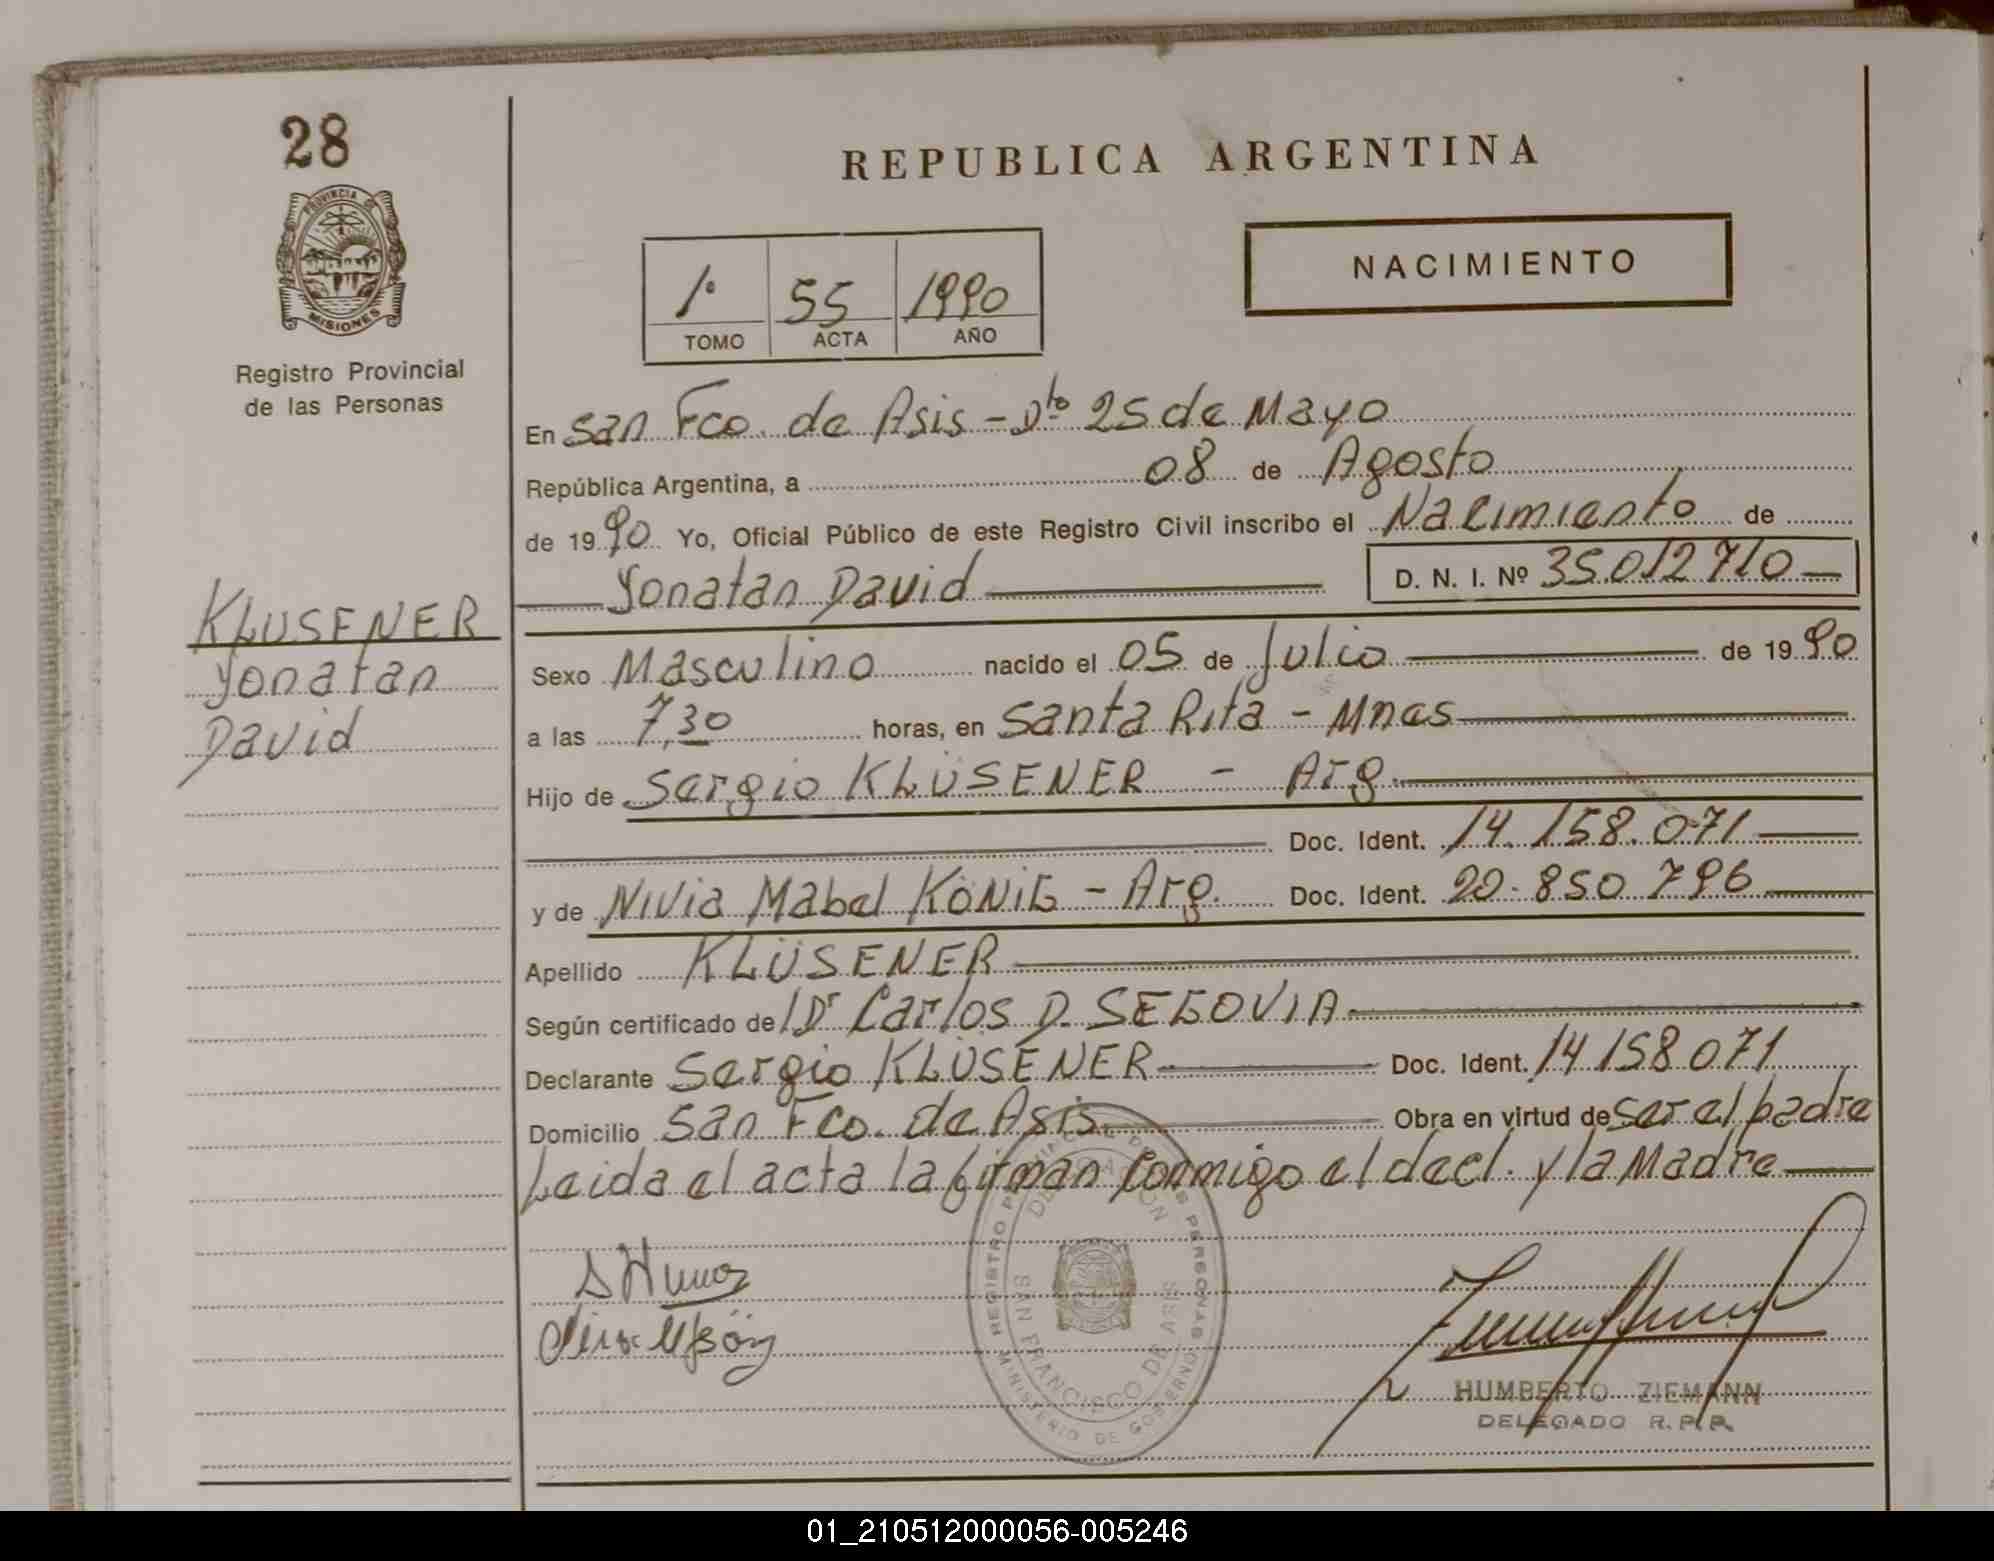 28
PROVINCIA DE
MISIONES
Registro Provincial
de las Personas
KLUSENER
Yonatan
David
REPUBLICA ARGENTINA
1º 55 1990
TOMO ACTA AÑO
NACIMIENTO
En San Fco. de Asis - Dto 25 de Mayo
República Argentina, a 08 de Agosto
de 1990 Yo, Oficial Público de este Registro Civil inscribo el Nacimiento de
Yonatan David D. N. I. Nº 35012710
Sexo Masculino nacido el 05 de Julio de 1990
a las 7,30 horas, en Santa Rita - Mnes
Hijo de Sergio KLÜSENER - Arg
Doc. Ident. 14.158.071
y de Nivia Mabel KÖNIG - Arg. Doc. Ident. 20.850.796
Apellido KLÜSENER
Según certificado de Dr Carlos D. SEGOVIA
Declarante Sergio KLÜSENER Doc. Ident. 14.158.071
Domicilio San Fco. de Asis. Obra en virtud de ser el padre
Leida el acta la firman conmigo el decl. y la Madre
REGISTRO PROVINCIAL DE LAS PERSONAS
DELEGACION
SAN FRANCISCO DE ASIS
MINISTERIO DE GOBIERNO
HUMBERTO ZIEMANN
DELEGADO R. P. P.
01_210512000056-005246